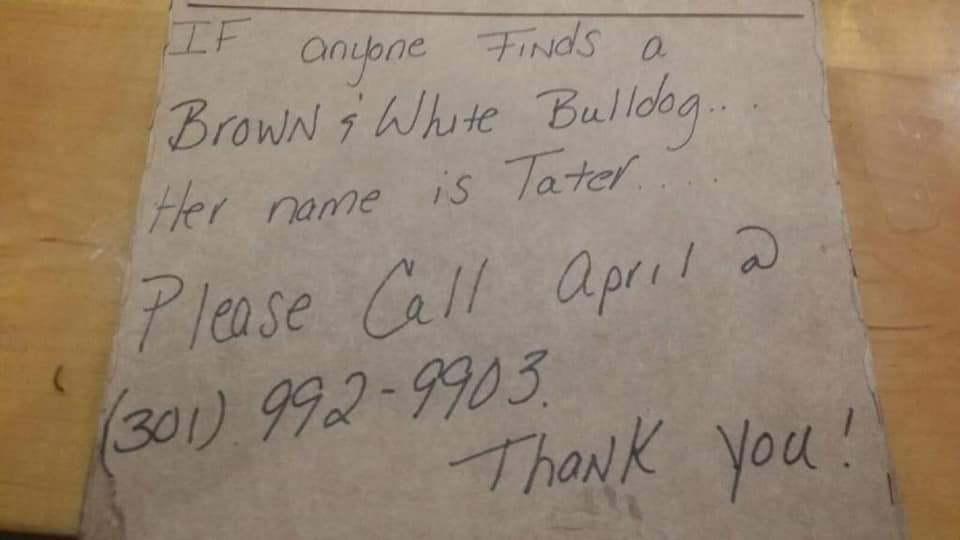 IF anyone FINds a
BrowN & White Bulldog...
Her name is Tater....
Please Call April @
(301) 992-9903.
ThaNK you!